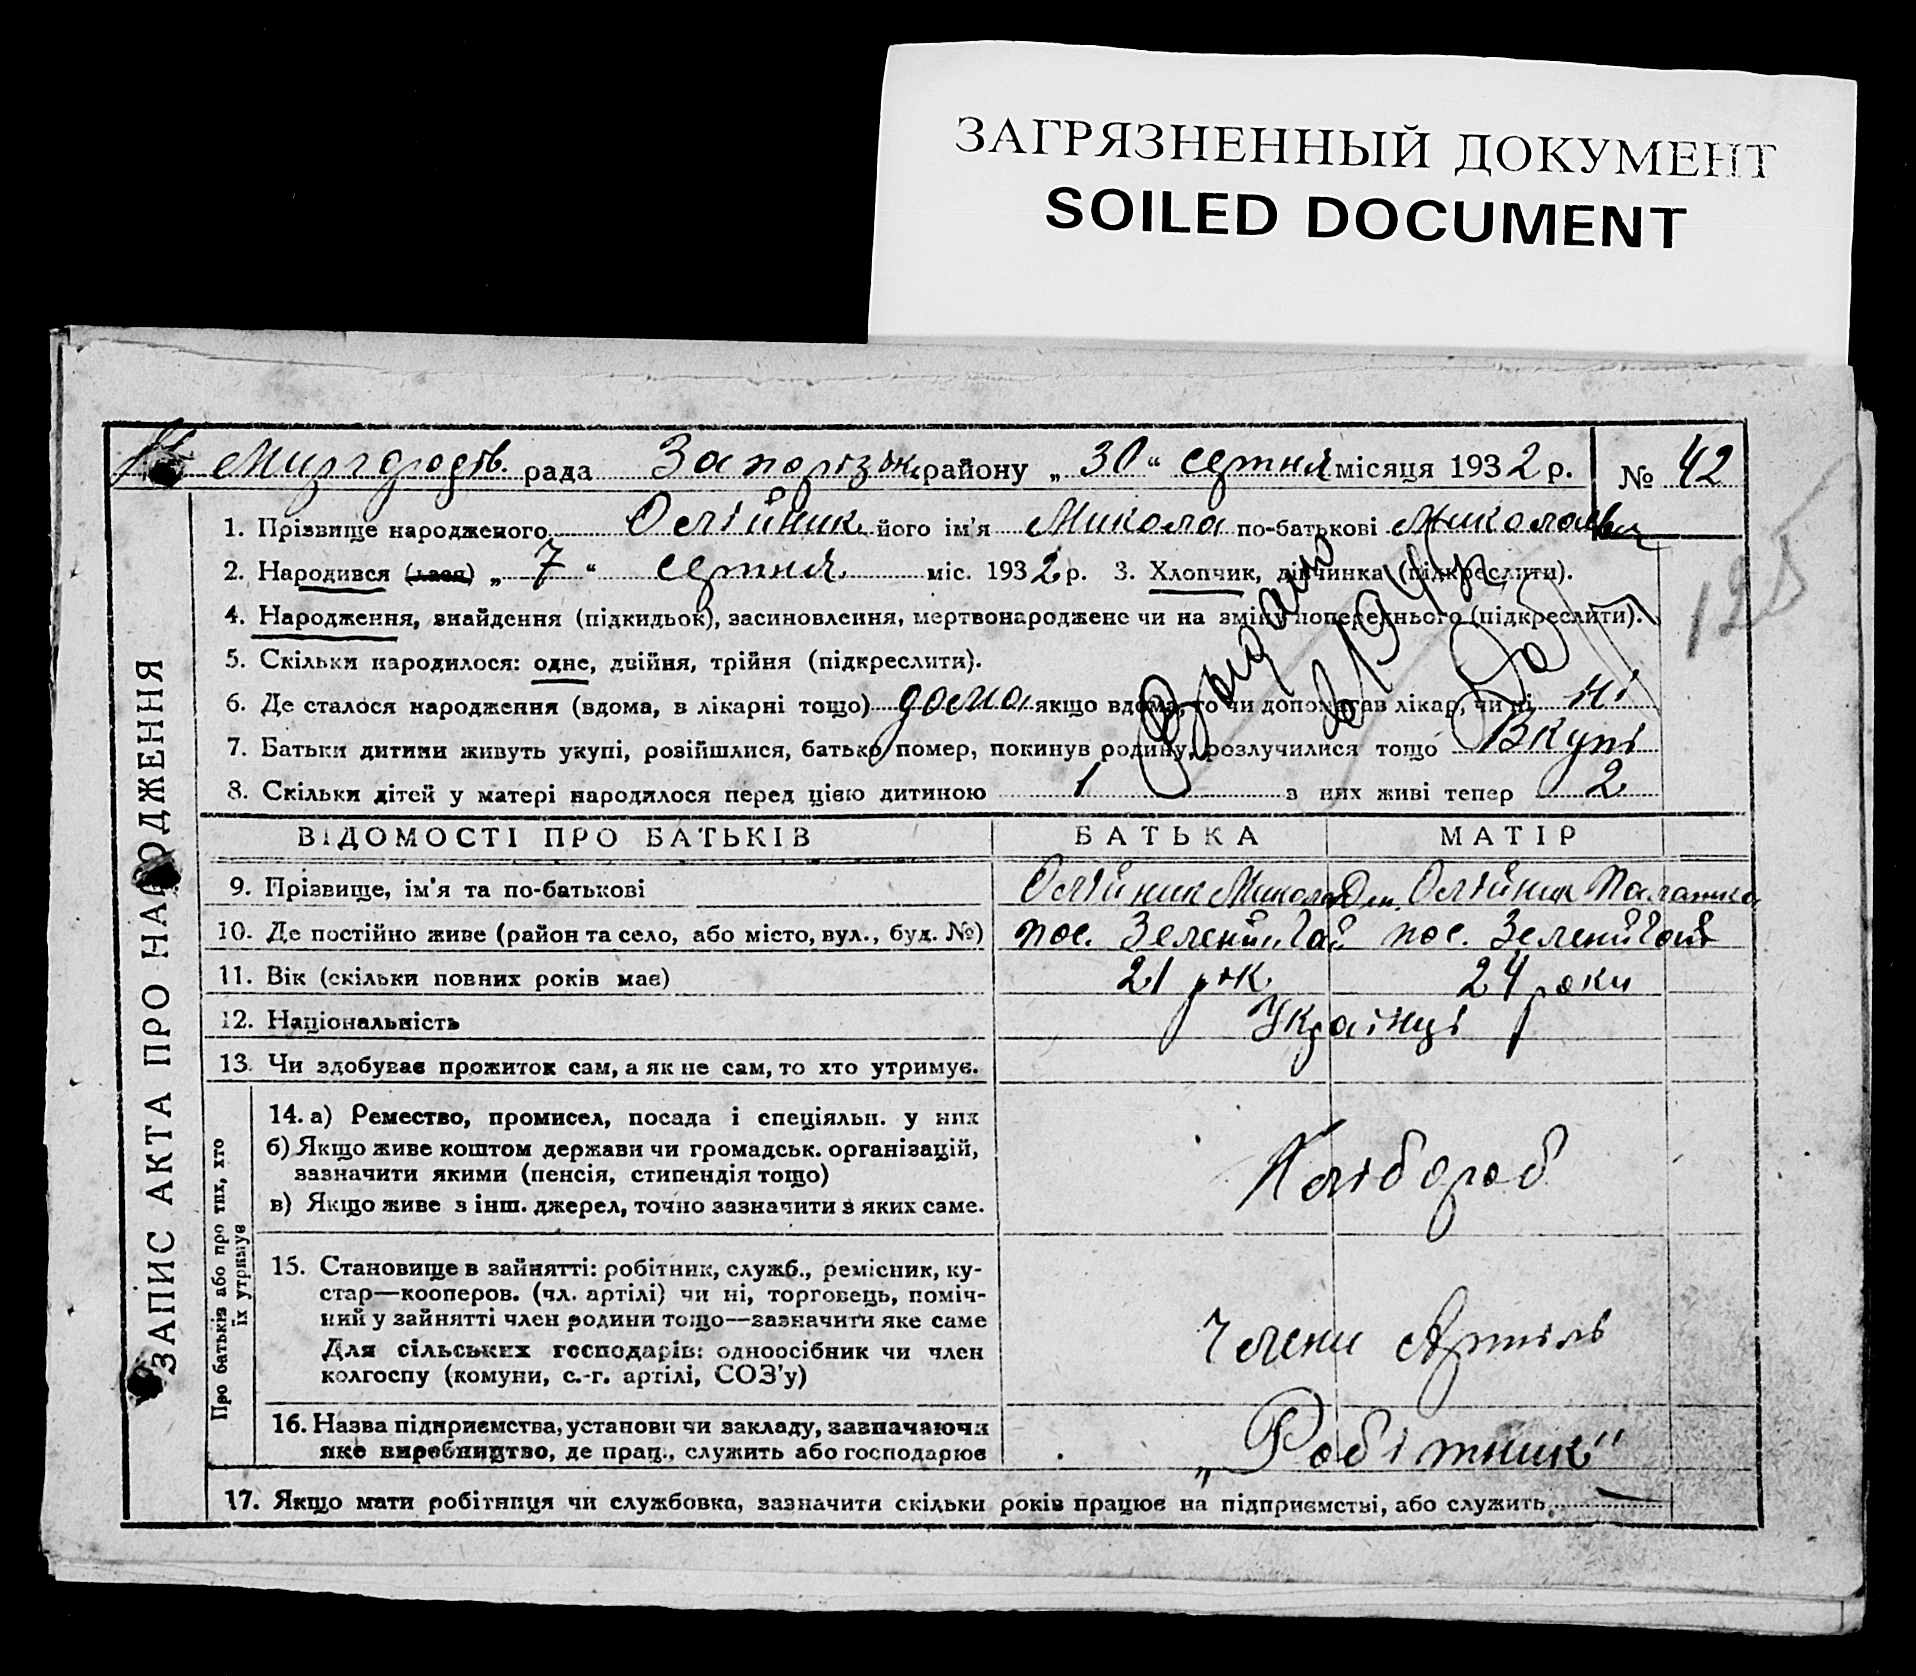 ЗАГРЯЗНЕННЫЙ ДОКУМЕНТ
SOILED DOCUMENT
Миргородів. рада Запорізьк. району „ 30 “ серпня місяця 1932 р. № 42
1. Прізвище народженого Олійник його ім'я Микола по-батькові Миколаєвич
2. Народився (лася) „ 7 “ серпня міс. 1932 р. 3. Хлопчик, дівчинка (підкреслити).
4. Народження, знайдення (підкидьок), засиновлення, мертвонароджене чи на зміну попереднього (підкреслити).
5. Скільки народилося: одне, двійня, трійня (підкреслити).
6. Де сталося народження (вдома, в лікарні тощо) дома якщо вдома, то чи допомагав лікар, чи ні ні
7. Батьки дитини живуть укупі, розійшлися, батько помер, покинув родину, розлучилися тощо Вкупі
8. Скільки дітей у матері народилося перед цією дитиною 1 з них живі тепер 2
128
ЗАПИС АКТА ПРО НАРОДЖЕННЯ
ВІДОМОСТІ ПРО БАТЬКІВ БАТЬКА МАТІР
9. Прізвище, ім'я та по-батькові Олійник Микола Олійник
10. Де постійно живе (район та село, або місто, вул., буд. №) пос. Зелений Гай пос. Зелений Гай
11. Вік (скільки повних років має) 21 рік 24 роки
12. Національність Українці
13. Чи здобуває прожиток сам, а як не сам, то хто утримує.
Про батьків або про тих, хто
їх утримує
14. а) Ремество, промисел, посада і спеціяльн. у них
б) Якщо живе коштом держави чи громадськ. організацій,
зазначити якими (пенсія, стипендія тощо)
в) Якщо живе з інш. джерел, точно зазначити з яких саме.
Хлібороб
15. Становище в зайнятті: робітник, служб., ремісник, ку-
стар—кооперов. (чл. артілі) чи ні, торговець, поміч-
ний у зайнятті член родини тощо—зазначити яке саме
Для сільських господарів: одноосібник чи член
колгоспу (комуни, с.-г. артілі, СОЗ'у)
Члени Артіль
16. Назва підприємства, установи чи закладу, зазначаючи
яке виробництво, де прац., служить або господарює
„Робітник“
17. Якщо мати робітниця чи службовка, зазначити скільки років працює на підприємстві, або служить —